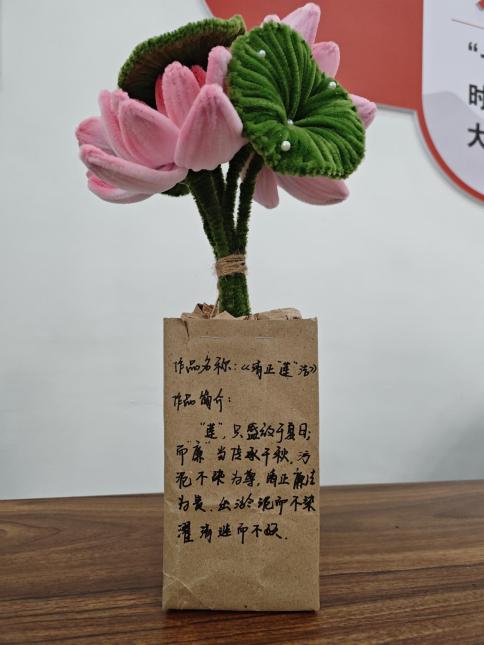 作品名称:《清正“莲”洁》
作品简介:
“莲”,只盛放于夏日;
而“廉”当传承千秋,污
泥不染为尊,清正廉洁
为贵,出淤泥而不染
濯清涟而不妖.
“
时
大